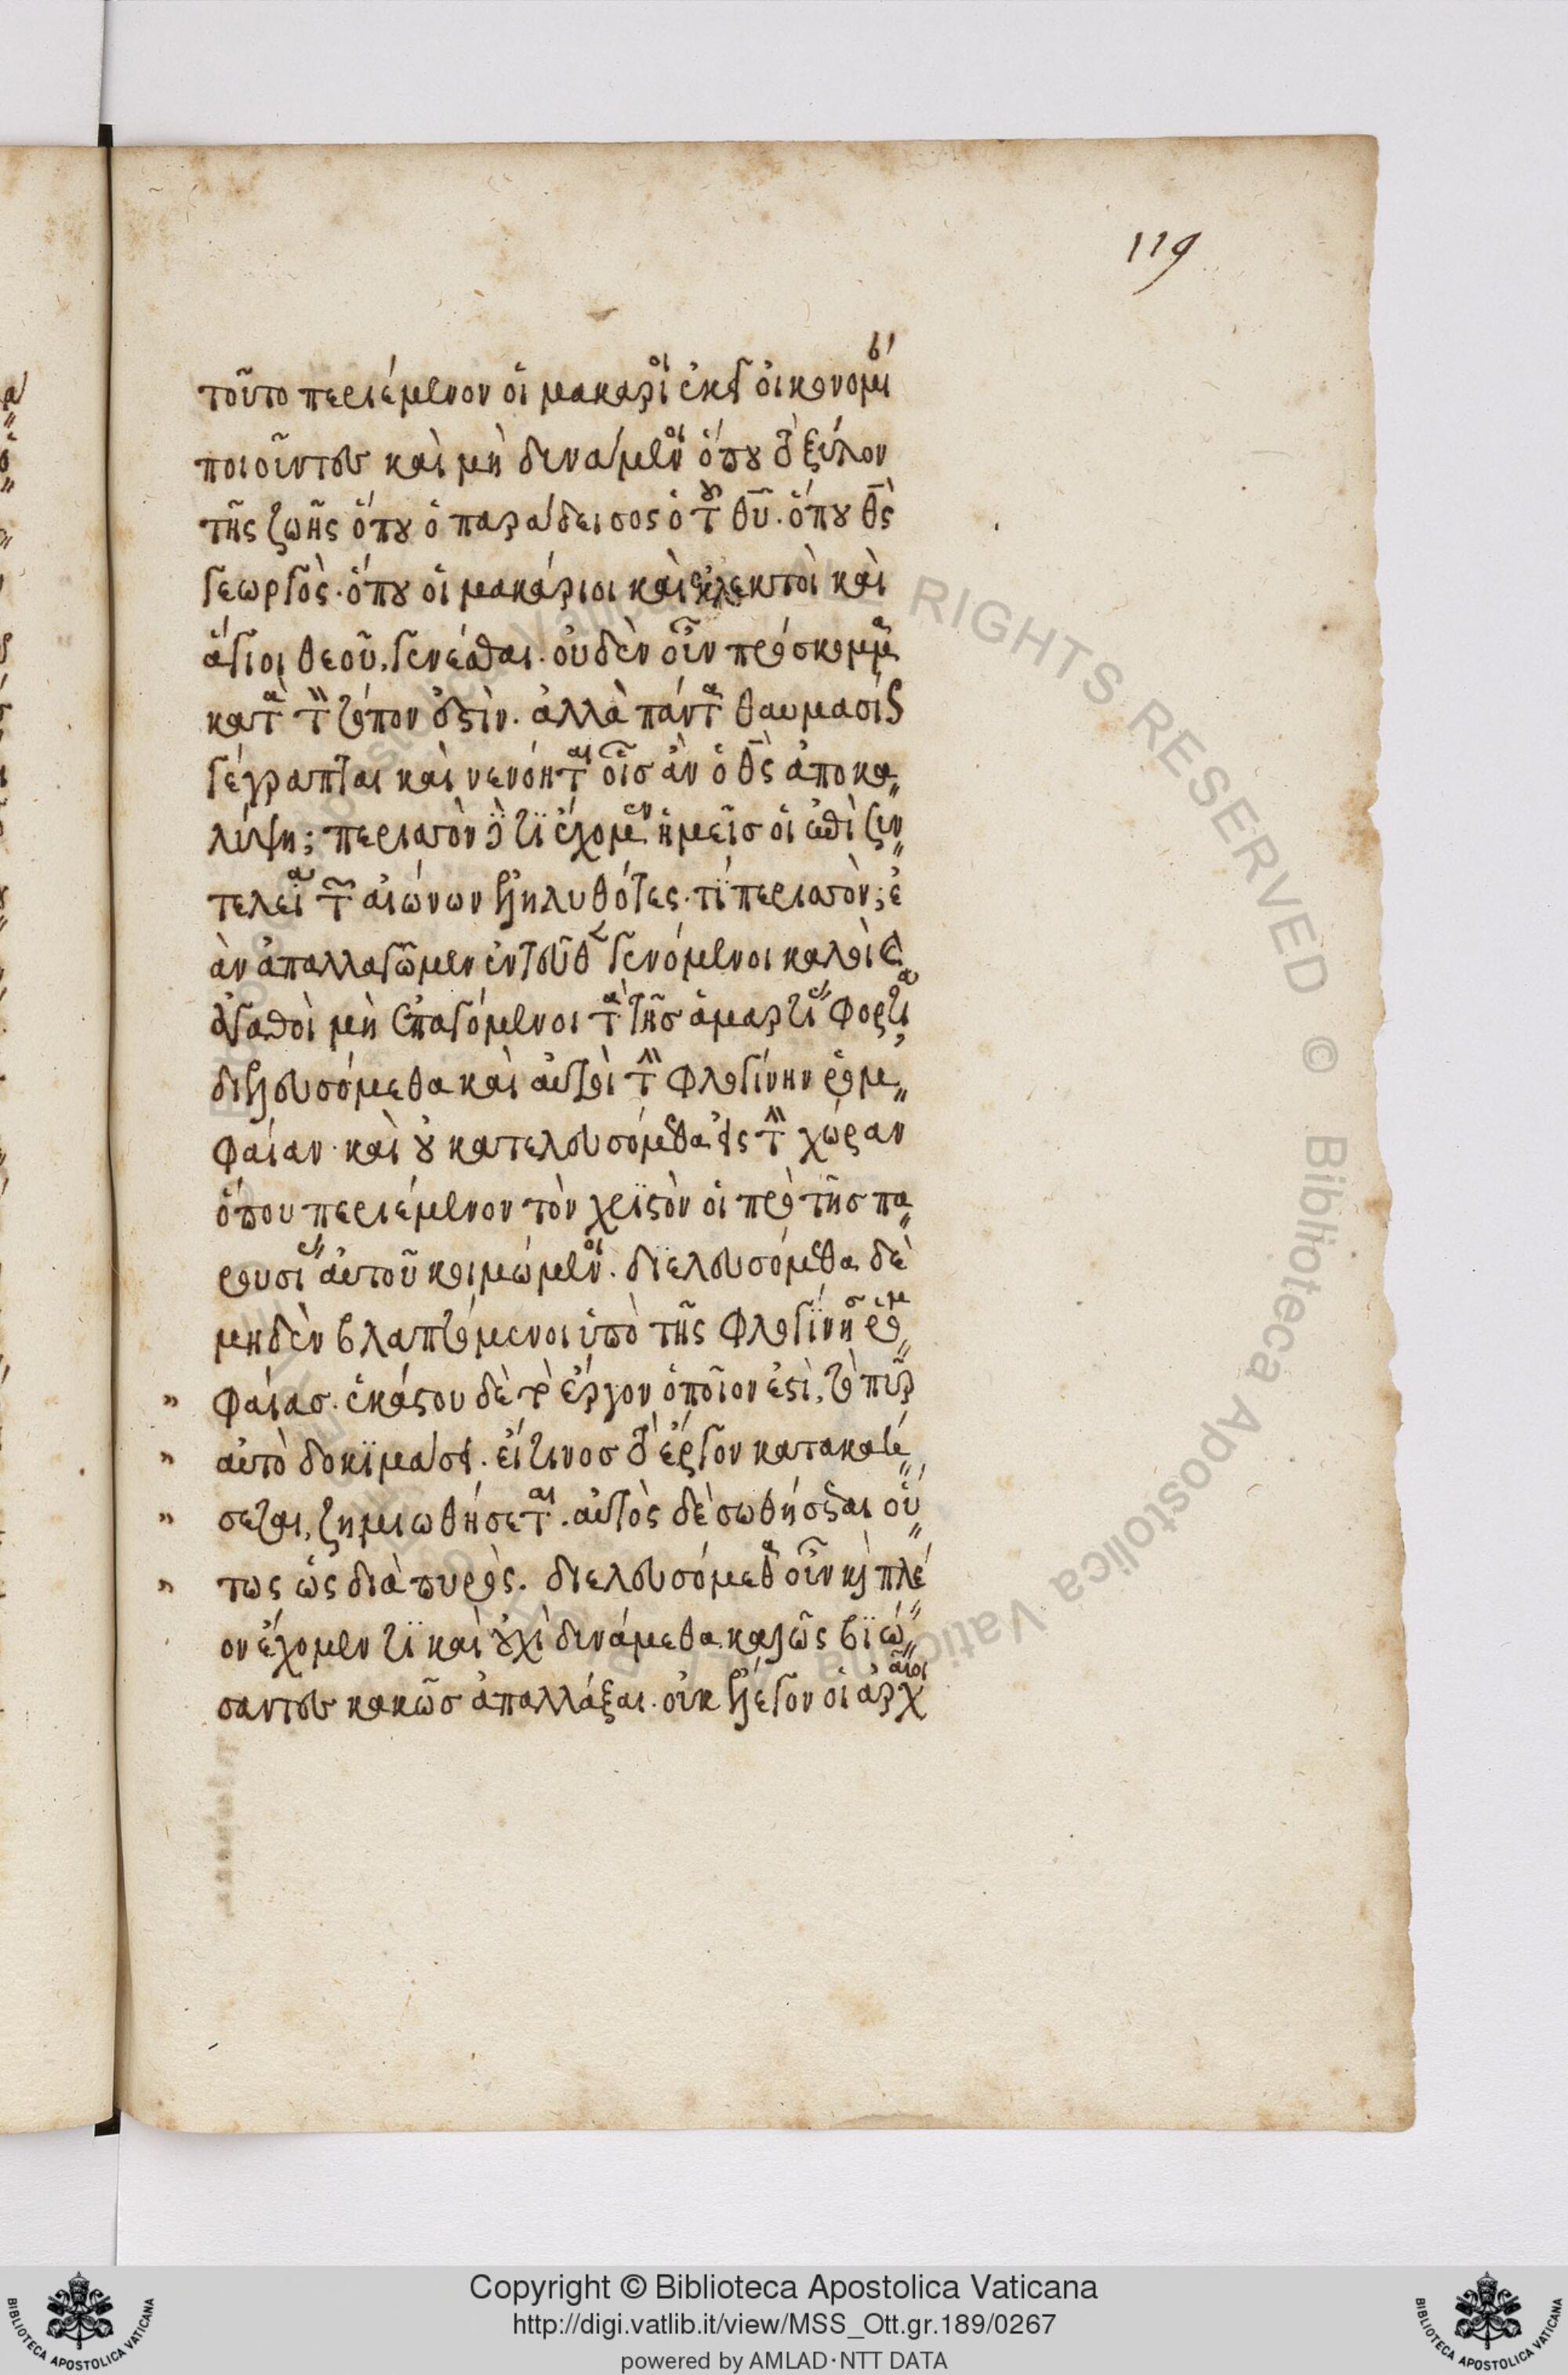 119
τοῦτο περιέμενον οἱ μακάριοι ἐκεῖ οἰκονομί
ποιοῦντες καὶ μὴ δυνάμενοι ὅπου τὸ ξύλον
τῆς ζωῆς ὅπου ὁ παράδεισος ὁ τοῦ θυ̅. ὅπου θς̅
γεωργὸς· ὅπου οἱ μακάριοι καὶ ἐκλεκτοὶ καὶ
ἅγιοι θεοῦ, γενέσθαι. οὐδὲν οὖν πρόσκομμα
κατὰ τὸν τόπον ἐστὶν. ἀλλὰ πάντα θαυμασίως
γέγραπται καὶ νενόηται οἷσ ἀν ὁ θς̅ ἀποκα
λύψη; περισσὸν δὲ τϊ ἔχομεν ἡμεῖσ οἱ ἐπὶ συν
τελεία τῶν αἰώνων ἐληλυθότες. τϊ περισσόν; ἐ
ὰν ἀπαλλαγῶμεν ἐντεῦθεν γενόμενοι καλοὶ καὶ
ἀγαθοὶ μὴ ἐπαγόμενοι τὰ τῆσ ἁμαρτίας φορτία,
διελευσόμεθα καὶ αὐτοὶ τὴν φλογίνην ῥομ
φαίαν· καὶ οὐ κατελευσόμεθα εἰς τὴν χώραν
ὅπου περιέμενον τὸν χρϊστὸν οἱ πρὸ τῆσ πα
ρουσίας αὐτοῦ κοιμώμενοι. διελευσόμεθα δὲ
μηδὲν βλαπτόμενοι ὑπὸ τῆς φλογίνης ῥομ
φαίασ. ἑκάστου δὲ τὸ ἔργον ὁποῖον ἐστὶ, τὸ πῦρ
αὐτὸ δοκϊμάσει. εἴ τινοσ τὸ ἔργον κατακαή
σεται, ζημιωθήσεται. αὐτὸς δὲ σωθήσεται οὕ
τως ὡς διὰ πυρὸς. διελευσόμεθα οὖν καὶ πλέ
ον ἔχομεν τϊ καὶ οὐχὶ δυνάμεθα καλῶς βϊώ
σαντες κακῶσ ἀπαλλάξαι. οὐκ ἔλεγον οἱ ἀρχαῖοι
Copyright © Biblioteca Apostolica Vaticana
http://digi.vatlib.it/view/MSS_Ott.gr.189/0267
powered by AMLAD·NTT DATA